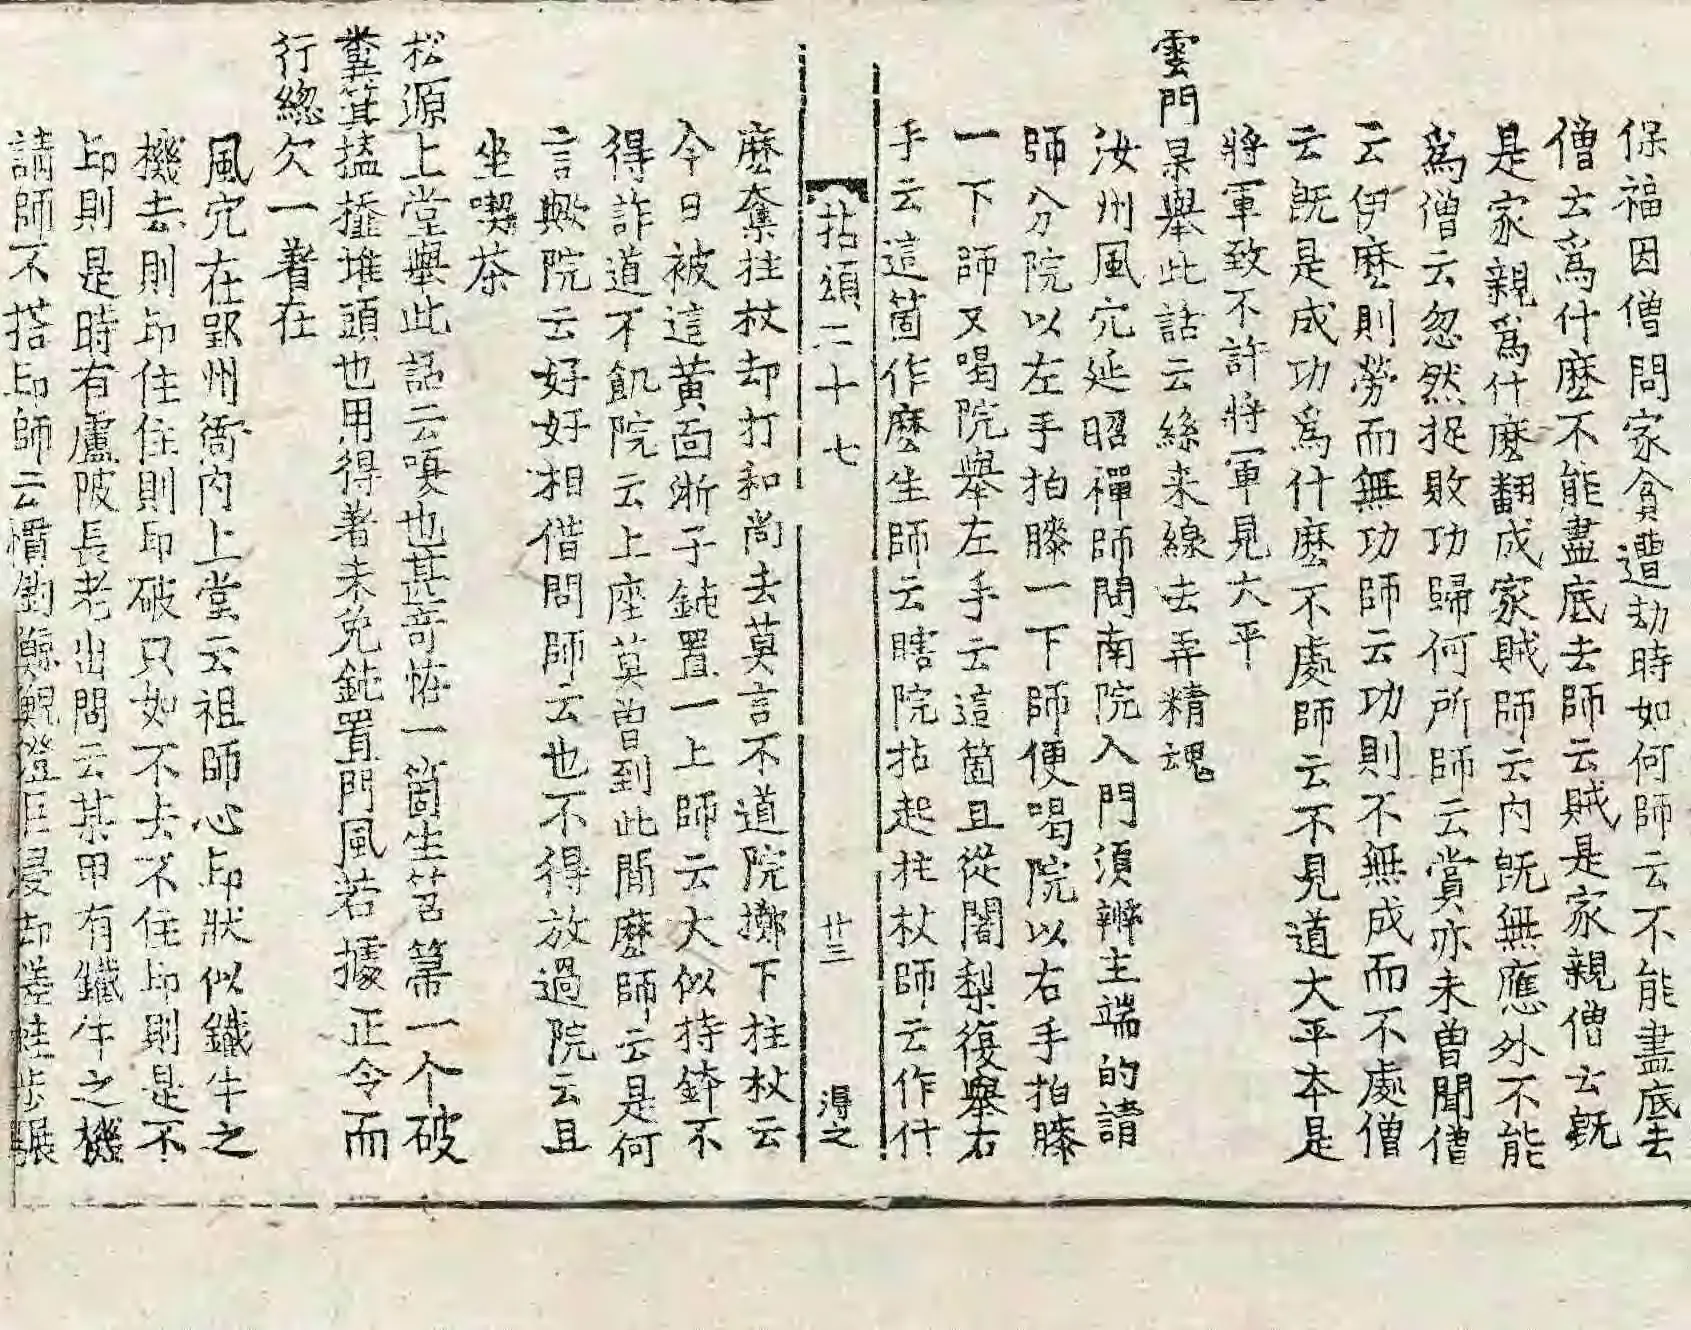 保福因僧問家貧遭劫時如何師云不能盡底去
僧云爲什麽不能盡底去師云賊是家親僧云既
是家親爲什麽翻成家賊師云内既無應外不能
爲僧云忽然捉敗功歸何所師云賞亦未曾聞僧
云伊麽則勞而無功師云功則不無成而不處僧
云既是成功爲什麽不處師云不見道大平本是
將軍致不許將軍見大平
雲門杲舉此話云絲来線去弄精魂
汝州風穴延昭禪師問南院入門湏辨主端的請
師分院以左手拍膝一下師便喝院以右手拍膝
一下師又喝院舉左手云這箇且從闍梨復舉右
手云這箇作麽生師云瞎院拈起拄杖師云作什
拈頌二十七 廿三 淂之
麽奪拄杖却打和尚去莫言不道院擲下拄杖云
今日被這黄面浙子鈍置一上師云大似持鉢不
得詐道不飢院云上座莫曾到此間麽師云是何
言歟院云好好相借問師云也不得放過院云且
坐喫茶
松源上堂舉此話云嗄也甚竒怪一箇生苕箒一个破
糞箕搕𢶍堆頭也用得著未免鈍置門風若據正令而
行緫欠一着在
風穴在郢州衙内上堂云祖師心印狀似鐵牛之
機去則印住住則印破只如不去不住印則是不
印則是時有盧陂長老出問云某甲有鐵牛之機
請師不搭印師云慣釣鯨鯢澄巨浸却嗟蛙步𩥇